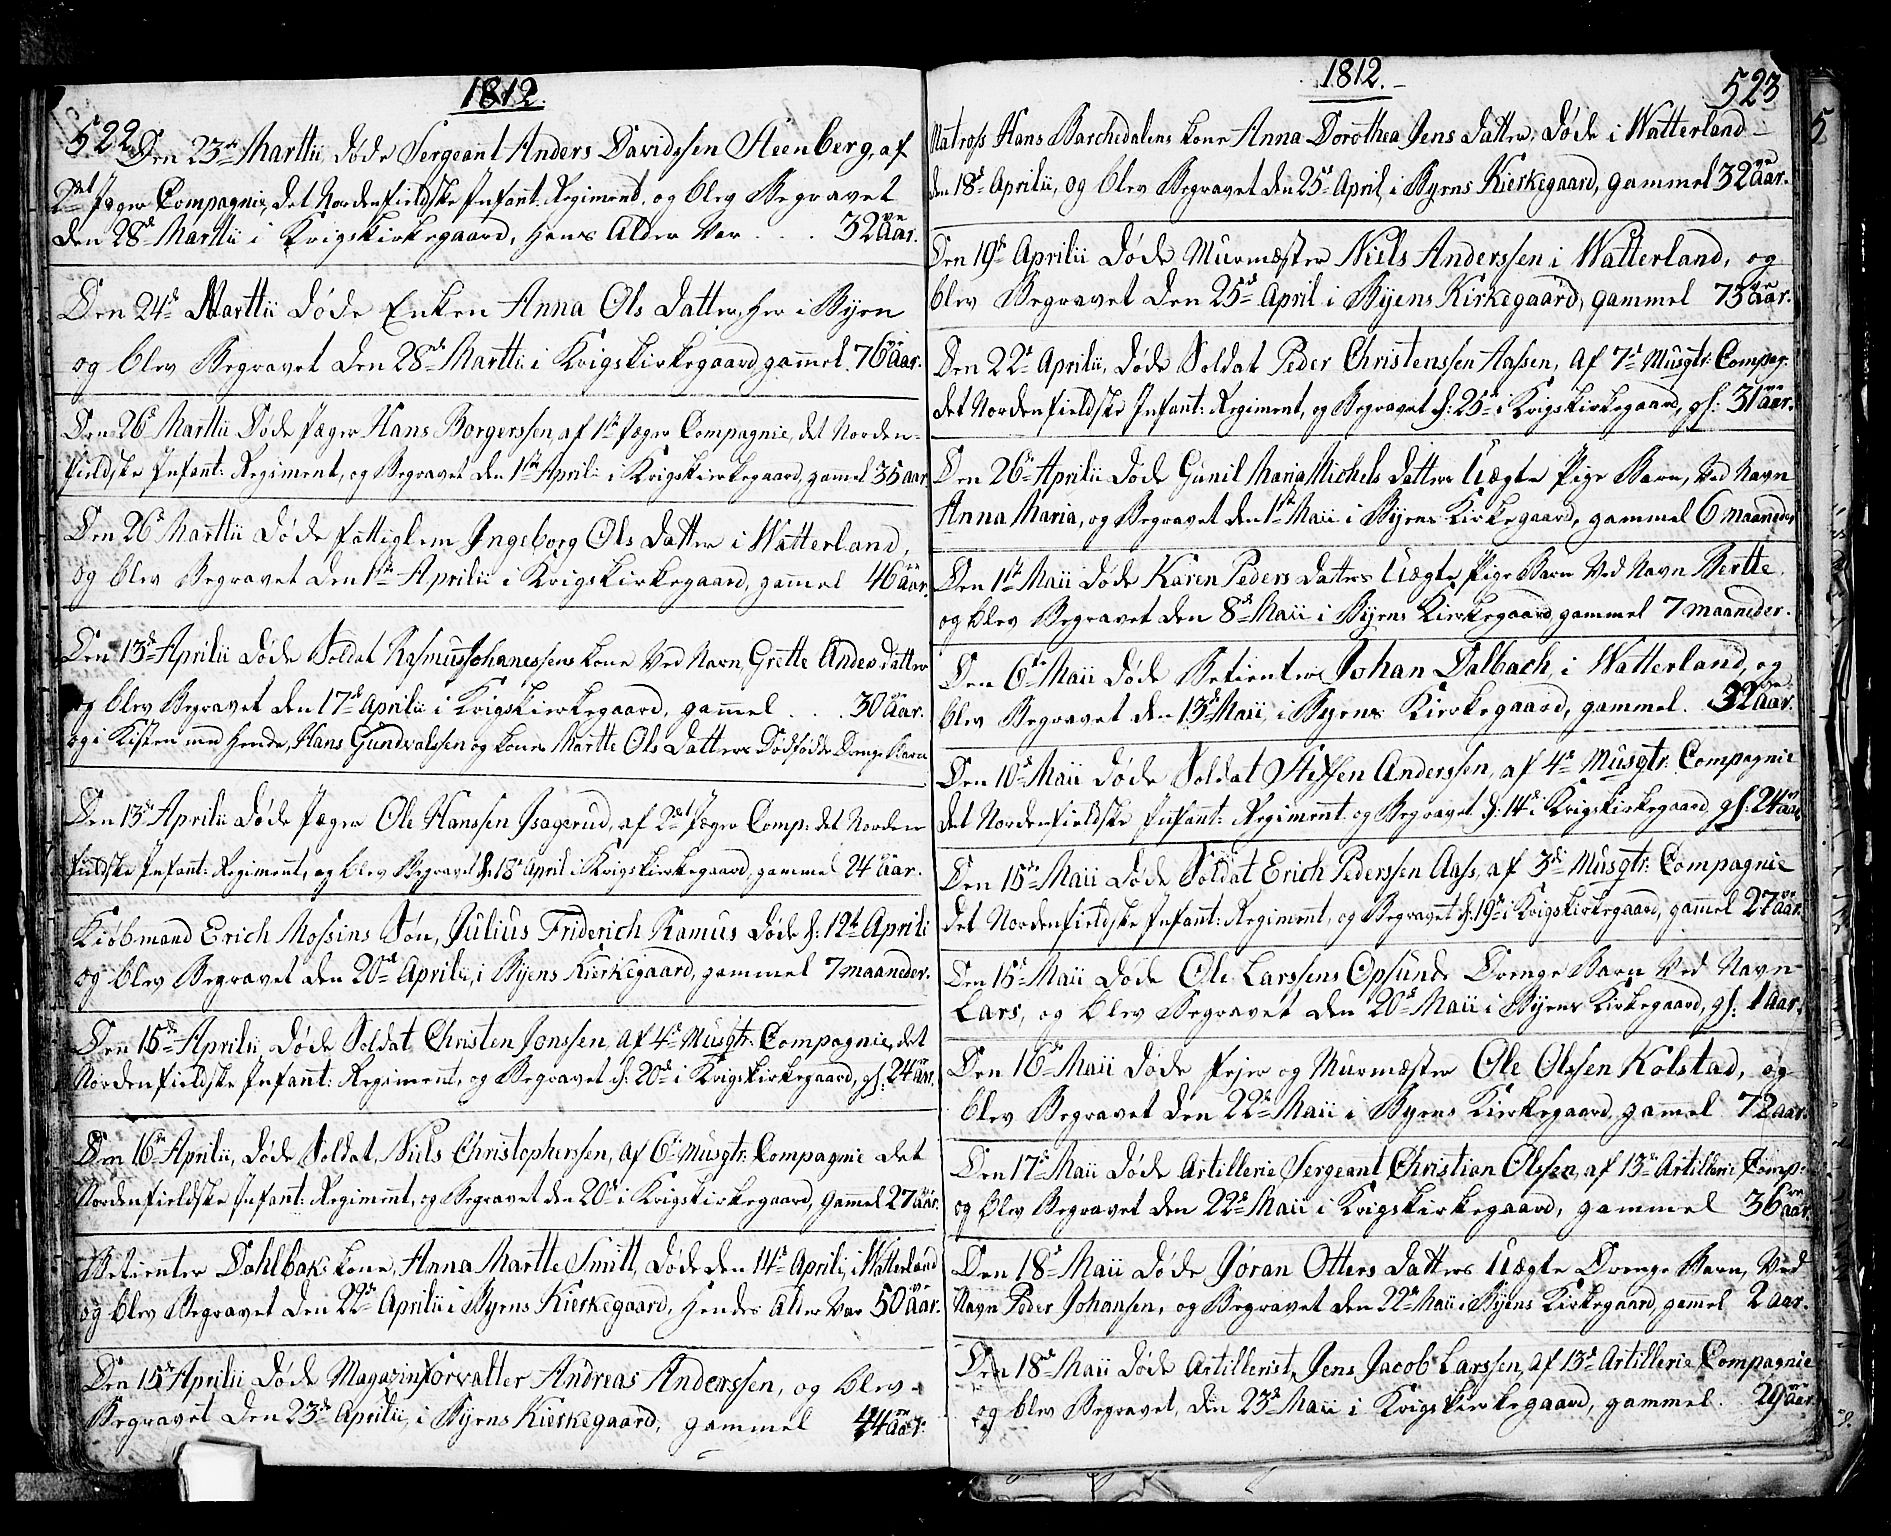 1812.
522
Den 23de Martii døde Sergeant Anders Davidssen Steenberg, af
2det Jæger Compagnie, det Nordenfieldske Infant: Regiment, og blev Begravet
den 28de Martii i Krigskirkegaard, hans Alder var . . 32 Aar.
Den 24de Martii døde Enken Anna Ols datter, her i Byen
og blev Begravet den 28de Martii i Krigskirkegaard, gammel 76 Aar.
Den 26de Martii døde Jæger Hans Borgerssen, af 1ste Jæger Compagnie, det Norden-
fieldske Infant: Regiment, og Begravet den 1ste Aprili i Krigskirkegaard, gammel 35 aar
Den 26de Martii døde fattiglem Ingeborg Ols datter i Watterland,
og blev Begravet den 1ste Aprilii i Krigskirkegaard, gammel 46 aar.
Den 13de Aprilii døde Soldat Rasmus Johanessens kone Ved Navn, Grette Anders datter
og blev Begravet den 17de Aprilii i Krigskirkegaard, gammel . . . 30 Aar.
og i Kisten med hende, Hans Gundvalssen og kones Martte Ols datters dødfødte Drenge Barn
Den 13de Aprilii døde Jæger Ole Hanssen Isagerud, af 2det Jæger Comp: det Norden
fieldske Infant: Regiment, og blev Begravet d: 18de April i Krigskirkegaard, gammel 24 Aar.
Kiøbmand Erich Mossins Søn, Julius Friderich Ramus døde d: 12te Aprili
og blev Begravet den 20de Aprilii, i Byens Kierkegaard, gammel 7 maaneder.
Den 15de Aprilii, døde Soldat Christen Jonssen, af 4de Musqtr: Compagnie, det
Nordenfieldske Infant: Regiment, og Begravet d: 20de i Krigskirkegaard, gl: 24 aar.
Den 16de Aprilii, døde Soldat, Niels Christophersen, af 6te Musqtr: Compagnie det
Nordenfieldske Infant: Regiment, og Begravet den 20de i Krigskirkegaard, gammel 27 aar.
Betienter Dahlbaks kone, Anna Martte Smitt, døde den 14de Aprili, i Watterland
og blev Begravet den 22de Aprilii i Byens Kierkegaard, hendes Alder Var 50 Aar.
Den 15de Aprilii døde Magazinforvalter Andreas Anderssen, og blev
Begravet den 23de Aprilii, i Byens Kierkegaard, gammel 44 aar.
1812.
523
Matross Hans Barchedalens kone Anna Dorothea Jens datter, døde i Watterland
den 18de Aprilii, og blev Begravet den 25de April, i Byens Kierkegaard, gammel 32 aar.
Den 19de Aprilii døde Murmæster Niels Anderssen i Watterland, og
blev Begravet den 25de April i Byens Kirkegaard, gammel 73 aar.
Den 22de Aprilii, døde Soldat Peder Christenssen Aassen, af 7de Musqtr: Compag.
det Nordenfieldske Infant: Regiment, og Begravet d: 25de i Krigskirkegaard, gl: 31 aar.
Den 26de Aprilii døde Gunil Maria Michels datters Uægte Pige Barn, Ved Navn
Anna Maria, og Begravet den 1ste Maii i Byens Kirkegaard, gammel 6 maaneder
Den 1ste Maii døde Karen Peders datters Uægte Pige Barn Ved Navn Bertte,
og blev Begravet den 8de Maii i Byens Kirkegaard, gammel 7 maaneder.
Den 6te Maii døde Betienter Johan Dalbach, i Watterland, og
blev Begravet den 13de Maii, i Byens Kierkegaard, gammel. 32 aar.
Den 10de Maii døde Soldat Steffen Anderssen, af 4de Musqtr: Compagnie
det Nordenfieldske Infant: Regiment og Begravet d: 14de i Krigskirkegaard, gl: 24 aar
Den 15de Maii døde Soldat Erich Pederssen Aass, af 3de Musqtr: Compagnie
det Nordenfieldske Infant: Regiment, og Begravet d: 19de i Krigskirkegaard, gammel 27 aar.
Den 15de Maii døde Ole Larssens Opsunde Drenge Barn Ved Navn
Lars, og blev Begravet den 20de Maii i Byens Kirkegaard, gl: 1 aar.
Den 16de Maii døde fejer og Murmæster Ole Olssen Kolstad, og
blev Begravet den 22de Maii i Byens Kierkegaard, gammel 72 aar.
Den 17de Maii døde Artillerie Sergeant Christian Olssen, af 13de Artillerie Comp:
og blev Begravet den 22de Maii i Krigskirkegaard, gammel 36 aar.
Den 18de Maii døde Jøran Otters datters Uægte Drenge Barn, Ved
Navn Peder Johansen, og Begravet den 22de Maii i Byens Kirkegaard, gammel 2 aar.
Den 18de Maii døde Artillerist, Jens Jacob Larssen, af 13de Artillerie Compagnie
og blev Begravet, den 23de Maii i Krigskirkegaard, gammel. 29 aar.